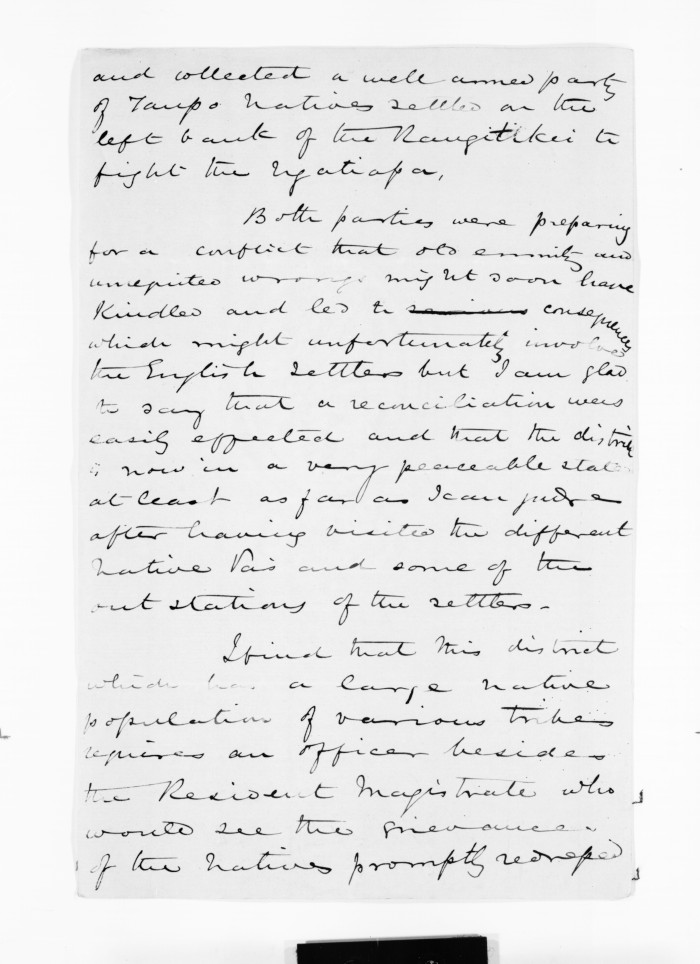 and collected a well armed party
of Taupo Natives settled on the
left bank of the Rangitikei to
fight the Ngatiapa,
Both parties were preparing
for a conflict that old enmity and
wrongs might soon have
Kindled and led to serious consequences
which might unfortunately involved
the English Settlers but I am glad
to say that a reconciliation was
easily effected and that the district
is now in a very peaceable state
at least as far as I can judge
after having visited the different
Native Pas and some of the
out stations of the settlers.
I find that this district
which has a large native
population of various tribes
requires an officer besides
the Resident Magistrate who
would see the grievances
of the Natives promptly redressed